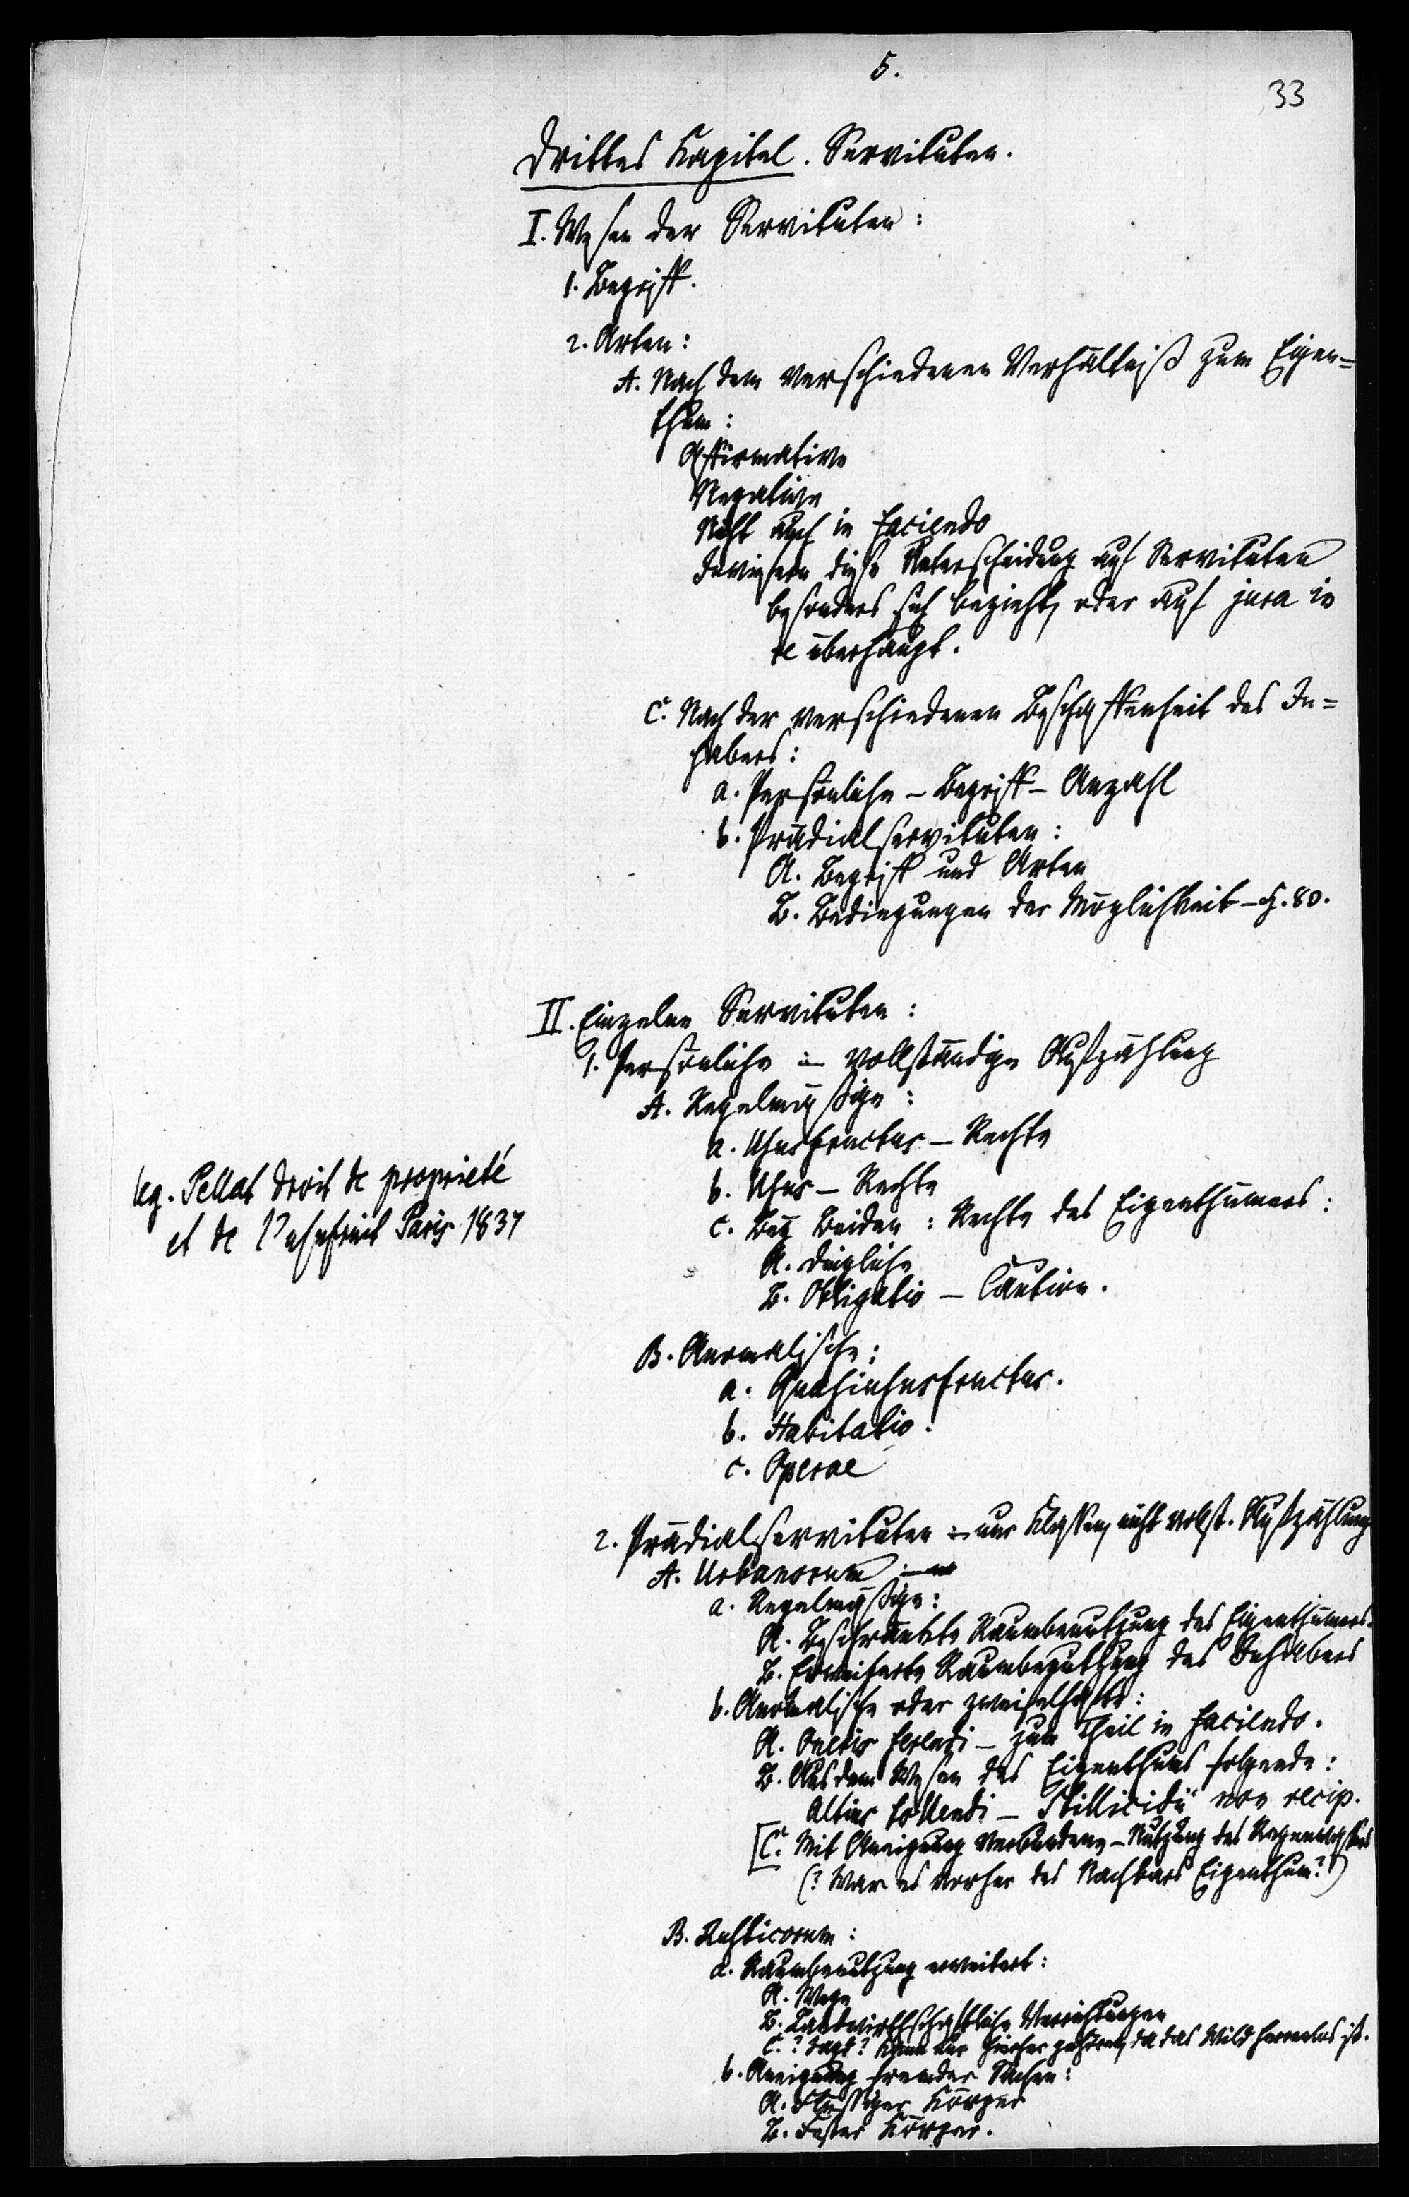 5.
33
Drittes Kapitel. Servituten.
I. Wesen der Servituten:
1. Begriff.
2. Arten:
A. Nach dem verschiedenen Verhältniß zum Eigen=
thum:
Affirmative
Negative
Nicht auch in faciendo
Inwiefern diese Unterscheidung auf Servituten
besonders sich bezieht, oder auf jura in
re überhaupt.
C. Nach der verschiedenen Beschaffenheit des In=
habers:
a. Persönliche – Begriff – Anzahl
b. Prädialservituten:
A. Begriff und Arten
B. Bedingungen der Möglichkeit – H. 80.
II. Einzelne Servituten:
1. Persönliche – vollständige Aufzählung
A. Regelmäßige:
a. Ususfructus – Rechte
b. Usus – Rechte
c. Bey Beiden: Rechte des Eigenthümers:
A. Dingliche
B. Obligatio – Caution.
leg. Pellat droit de proprieté
et de l'usufruit Paris 1837
B. Anomalische:
a. Quasiususfructus.
b. Habitatio.
c. Operae
2. Prädialservituten – nur Klassen, nicht vollst. Aufzählung
A. Urbanorum
a. Regelmäßige:
A. Beschränkte Raumbenutzung des Eigenthümers.
B. Erweiterte Raumbenutzung des Inhabers
b. Anomalische oder zweifelhafte:
A. Oneris ferendi – zum Theil in faciendo.
B. Aus dem Wesen des Eigenthums folgende:
Altius tollendi – Stillicidii non recip.
[C. Mit Aneignung verbundene – Nutzung des Regenwassers
(? War es vorher des Nachbars Eigenthum?)
B. Rusticorum:
a. Raumbenutzung erweitert:
A. Wege
B. Landwirthschaftliche Verrichtungen
C. ? Jagd? Kann nur hierher gehören, da das Wild herrenlos ist.
b. Aneignung fremder Sachen:
A. Flüssiger Körper
B. Fester Körper.